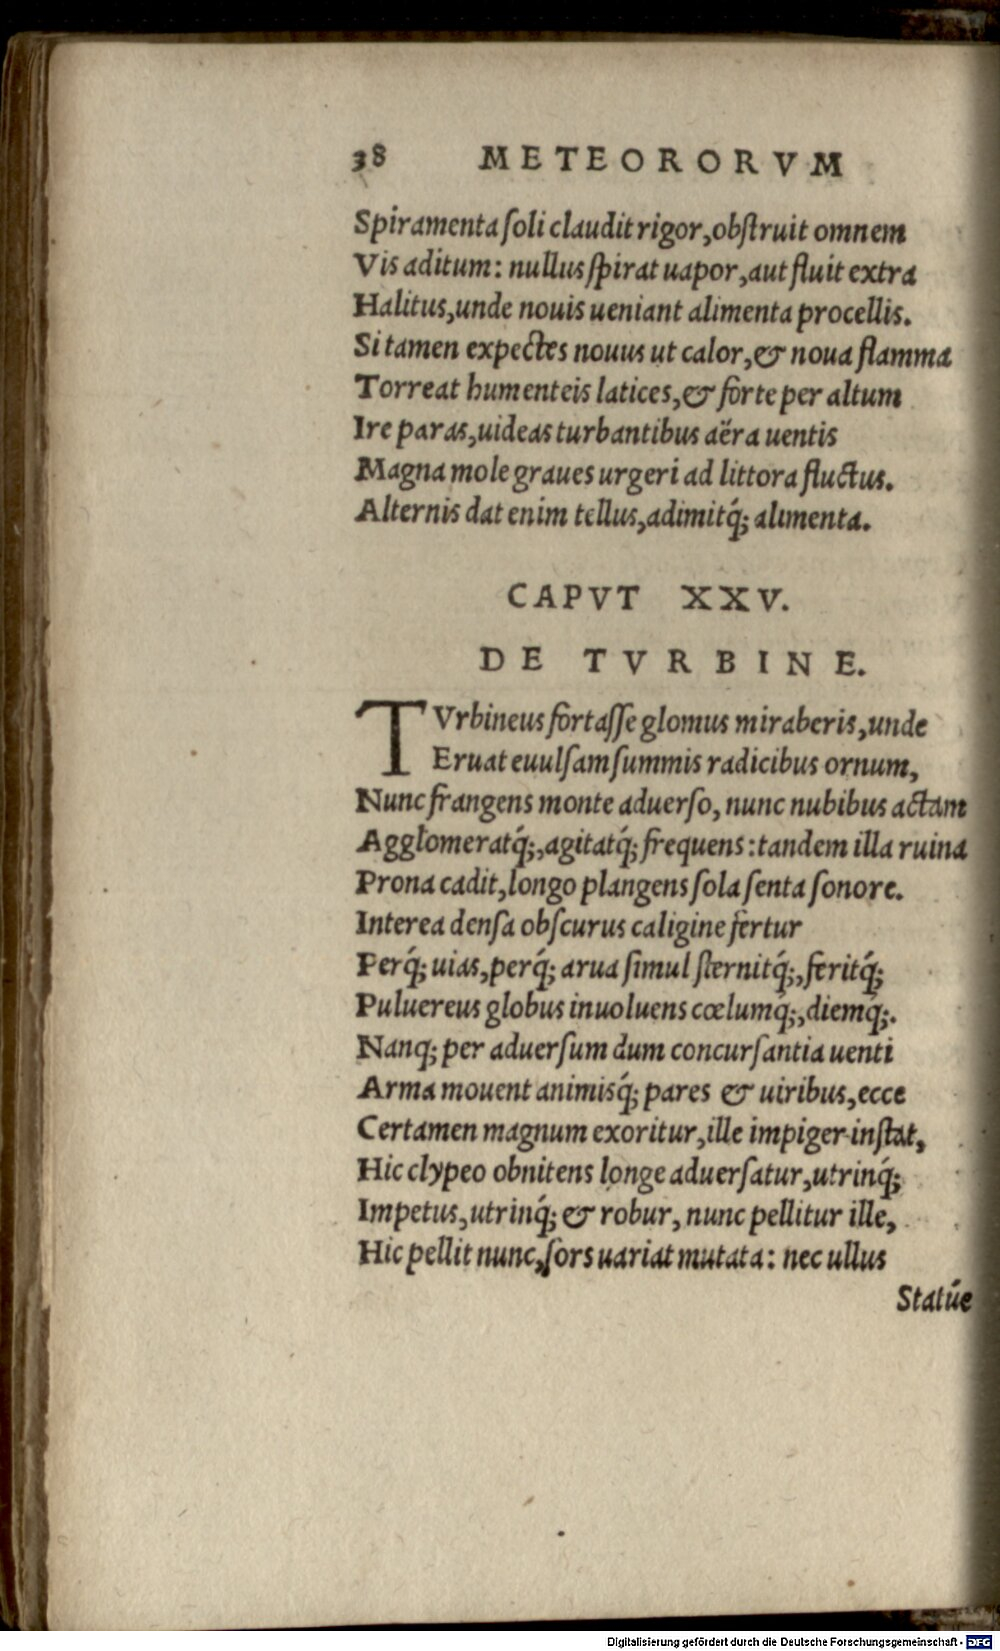 38 METEORORVM
Spiramenta ſoli claudit rigor, obſtruit omnem
Vis aditum: nullus ſpirat uapor, aut fluit extra
Halitus, unde nouis ueniant alimenta procellis.
Si tamen expectes nouus ut calor, & noua flamma
Torreat humenteis latices, & forte per altum
Ire paras, uideas turbantibus aëra uentis
Magna mole graues urgeri ad littora fluctus.
Alternis dat enim tellus, adimitq́; alimenta.
CAPVT XXV.
DE TVRBINE.
TVrbineus fortaſſe glomus miraberis, unde
Eruat euulſam ſummis radicibus ornum,
Nunc frangens monte aduerſo, nunc nubibus actam
Agglomeratq́;, agitatq́; frequens: tandem illa ruina
Prona cadit, longo plangens ſola ſenta ſonore.
Interea denſa obſcurus caligine fertur
Perq́; uias, perq́; arua ſimul ſternitq́;, feritq́;
Puluereus globus inuoluens cœlumq́;, diemq́;.
Nanq; per aduerſum dum concurſantia uenti
Arma mouent animisq́; pares & uiribus, ecce
Certamen magnum exoritur, ille impiger inſtat,
Hic clypeo obnitens longe aduerſatur, utrinq́;
Impetus, utrinq́; & robur, nunc pellitur ille,
Hic pellit nunc, ſors uariat mutata: nec ullus
Statúe
Digitalisierung gefördert durch die Deutsche Forschungsgemeinschaft - DFG